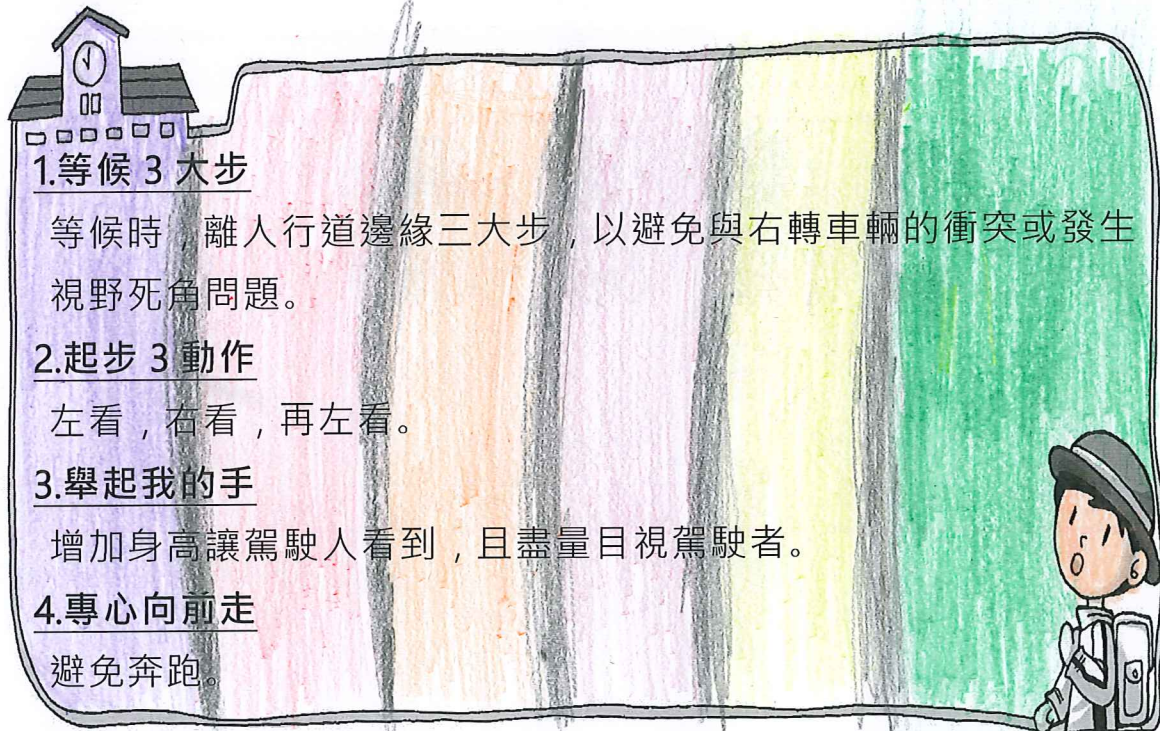 1.等候 3 大步
等候時，離人行道邊緣三大步，以避免與右轉車輛的衝突或發生
視野死角問題。
2.起步 3 動作
左看，右看，再左看。
3.舉起我的手
增加身高讓駕駛人看到，且盡量目視駕駛者。
4.專心向前走
避免奔跑。